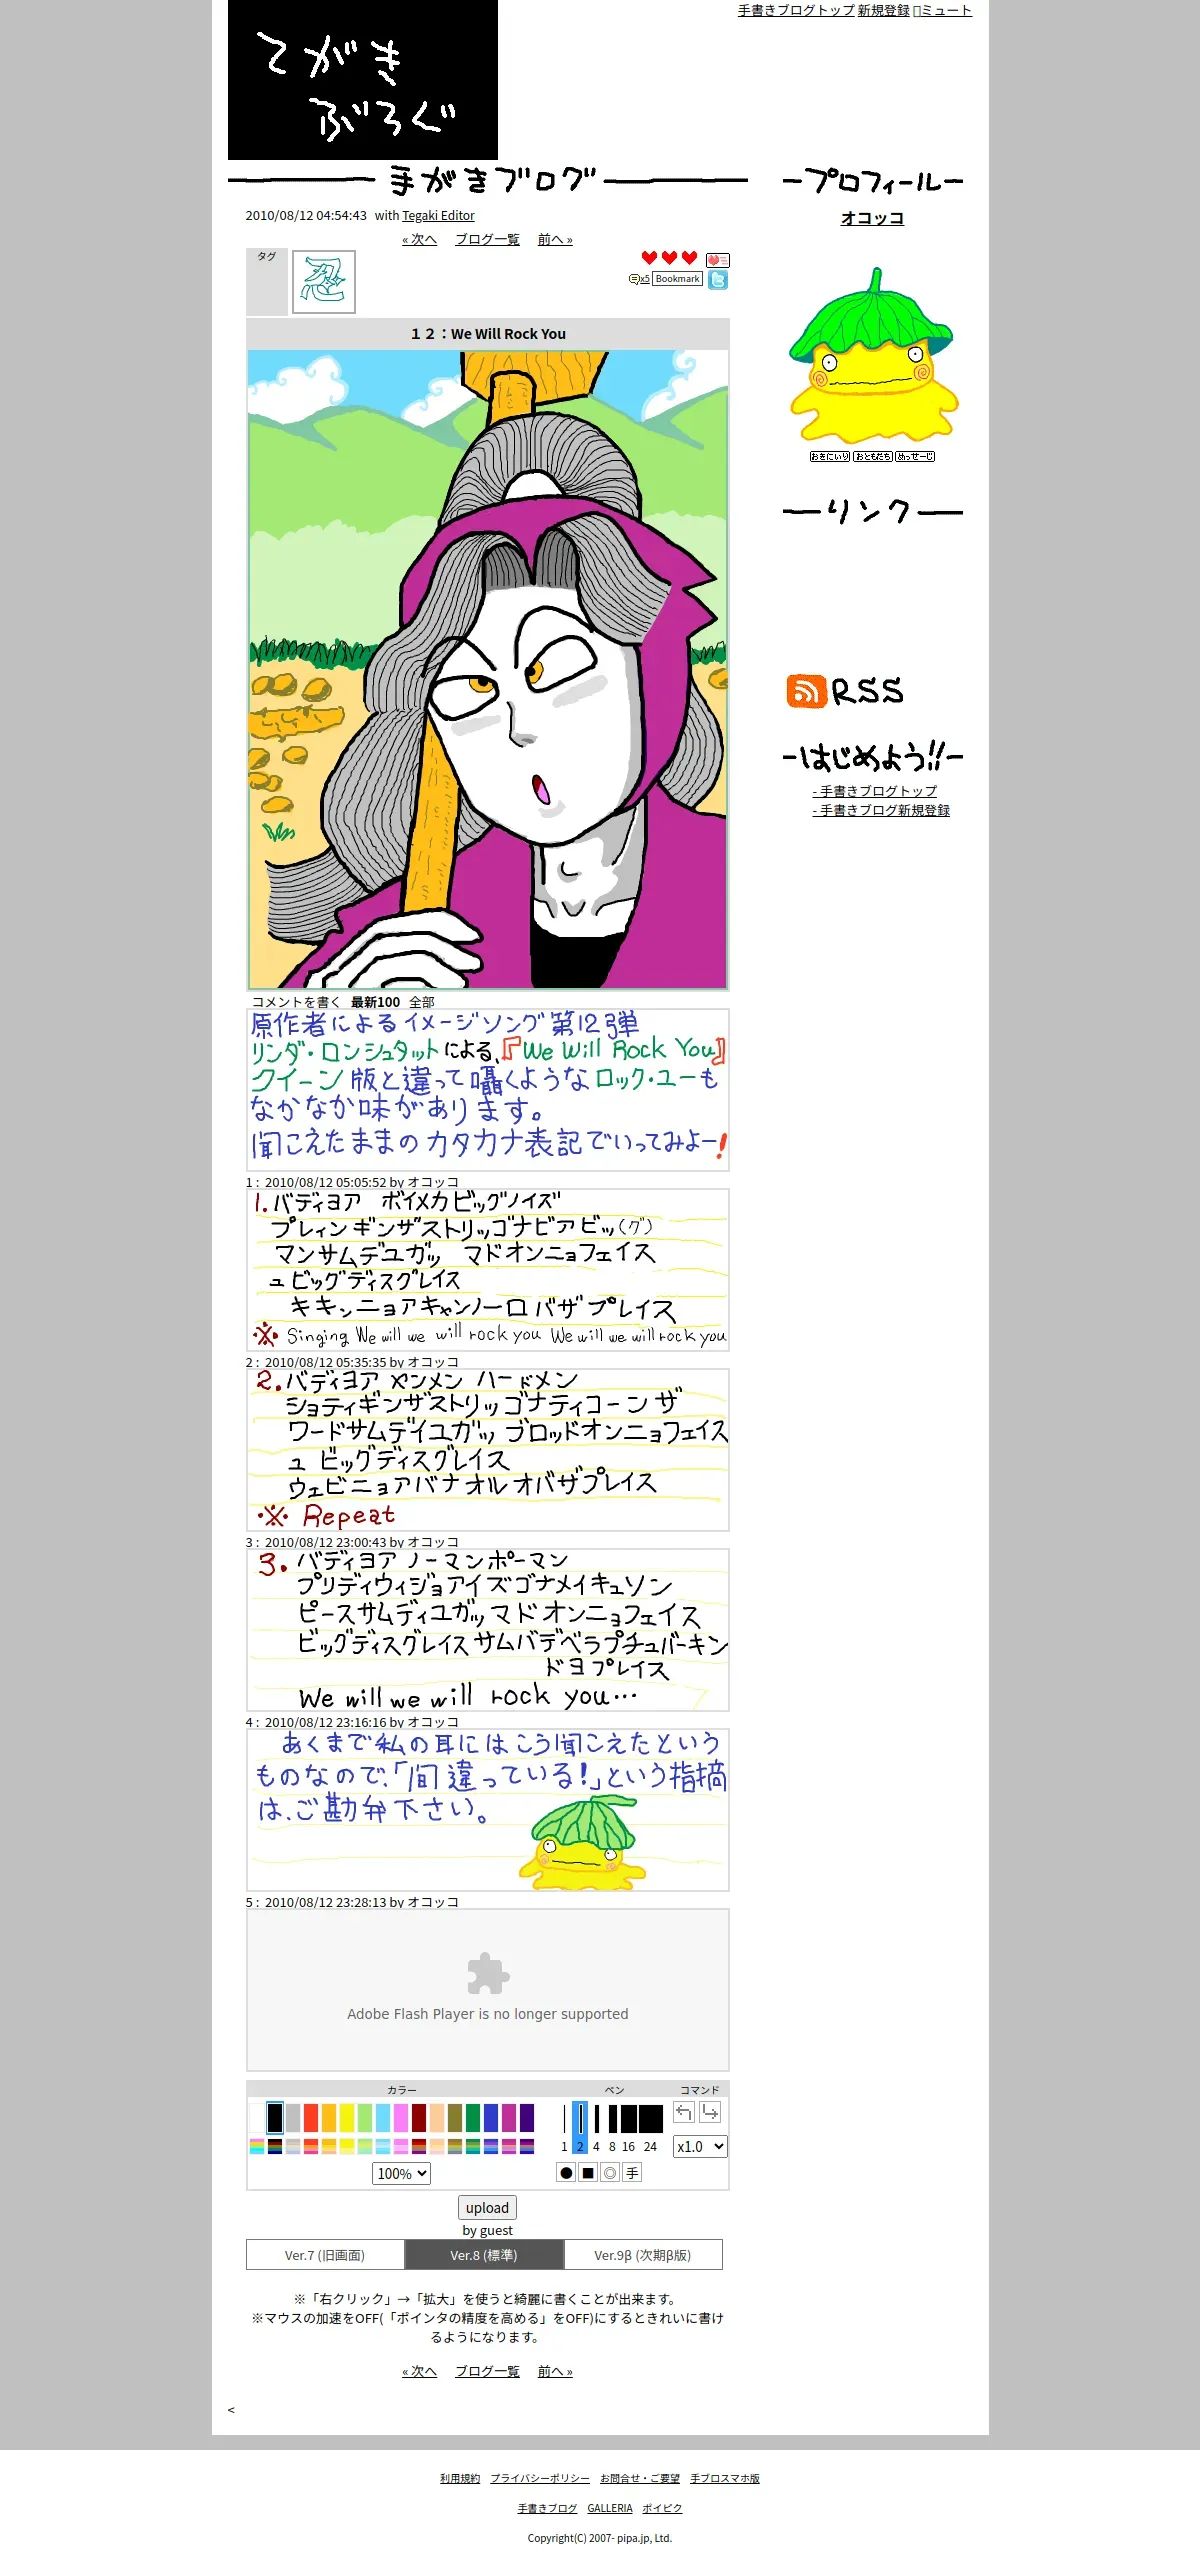 てがき
ぶろぐ
手書きブログトップ 新規登録 ミュート
手がきブログ
プロフィール
2010/08/12 04:54:43 with Tegaki Editor
オコッコ
« 次へ ブログ一覧 前へ »
タグ
忍
x5 Bookmark
１２：We Will Rock You
おきにいり おともだち めっせーじ
リンク
RSS
はじめよう!!
- 手書きブログトップ
- 手書きブログ新規登録
コメントを書く 最新100 全部
原作者によるイメージソング第12弾
リンダ・ロンシュタットによる、『We Will Rock You』
クイーン版と違って囁くようなロック・ユーも
なかなか味があります。
聞こえたままのカタカナ表記でいってみよー!
1 : 2010/08/12 05:05:52 by オコッコ
1. バディヨア ボイメカビッグノイズ
プレィンギンザストリッゴナビアビッ(グ)
マンサムデユガッ マドオンニョフェイス
ュビッグディスグレイス
キキンニョアキャンノーロバザプレイス
※ Singing We will we will rock you We will we will rock you
2 : 2010/08/12 05:35:35 by オコッコ
2. バディヨア ヤンメン ハードメン
ショティギンザストリッゴナティコーンザ
ワードサムデイユガッ ブロッドオンニョフェイス
ュ ビッグディスグレイス
ウェビニョアバナオルオバザプレイス
※ Repeat
3 : 2010/08/12 23:00:43 by オコッコ
3. バディヨア ノーマンポーマン
プリディウィジョアイズゴナメイキュソン
ピースサムディユガッマドオンニョフェイス
ビッグディスグレイスサムバデベラプチュバーキン
ドヨプレイス
We will we will rock you…
4 : 2010/08/12 23:16:16 by オコッコ
あくまで私の耳にはこう聞こえたという
ものなので、「間違っている!」という指摘
は、ご勘弁下さい。
5 : 2010/08/12 23:28:13 by オコッコ
Adobe Flash Player is no longer supported
カラー ペン コマンド
1 2 4 8 16 24 x1.0
100% ● ■ ◎ 手
upload
by guest
Ver.7 (旧画面) Ver.8 (標準) Ver.9β (次期β版)
※「右クリック」→「拡大」を使うと綺麗に書くことが出来ます。
※マウスの加速をOFF(「ポインタの精度を高める」をOFF)にするときれいに書け
るようになります。
« 次へ ブログ一覧 前へ »
<
利用規約 プライバシーポリシー お問合せ・ご要望 手ブロスマホ版
手書きブログ GALLERIA ボイピク
Copyright(C) 2007- pipa.jp, Ltd.